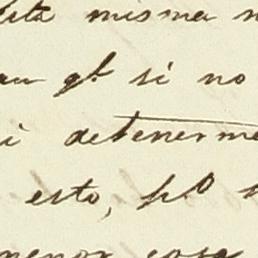 esta misma
qᵉ si no
detenerme
esto, pº
menor cosa